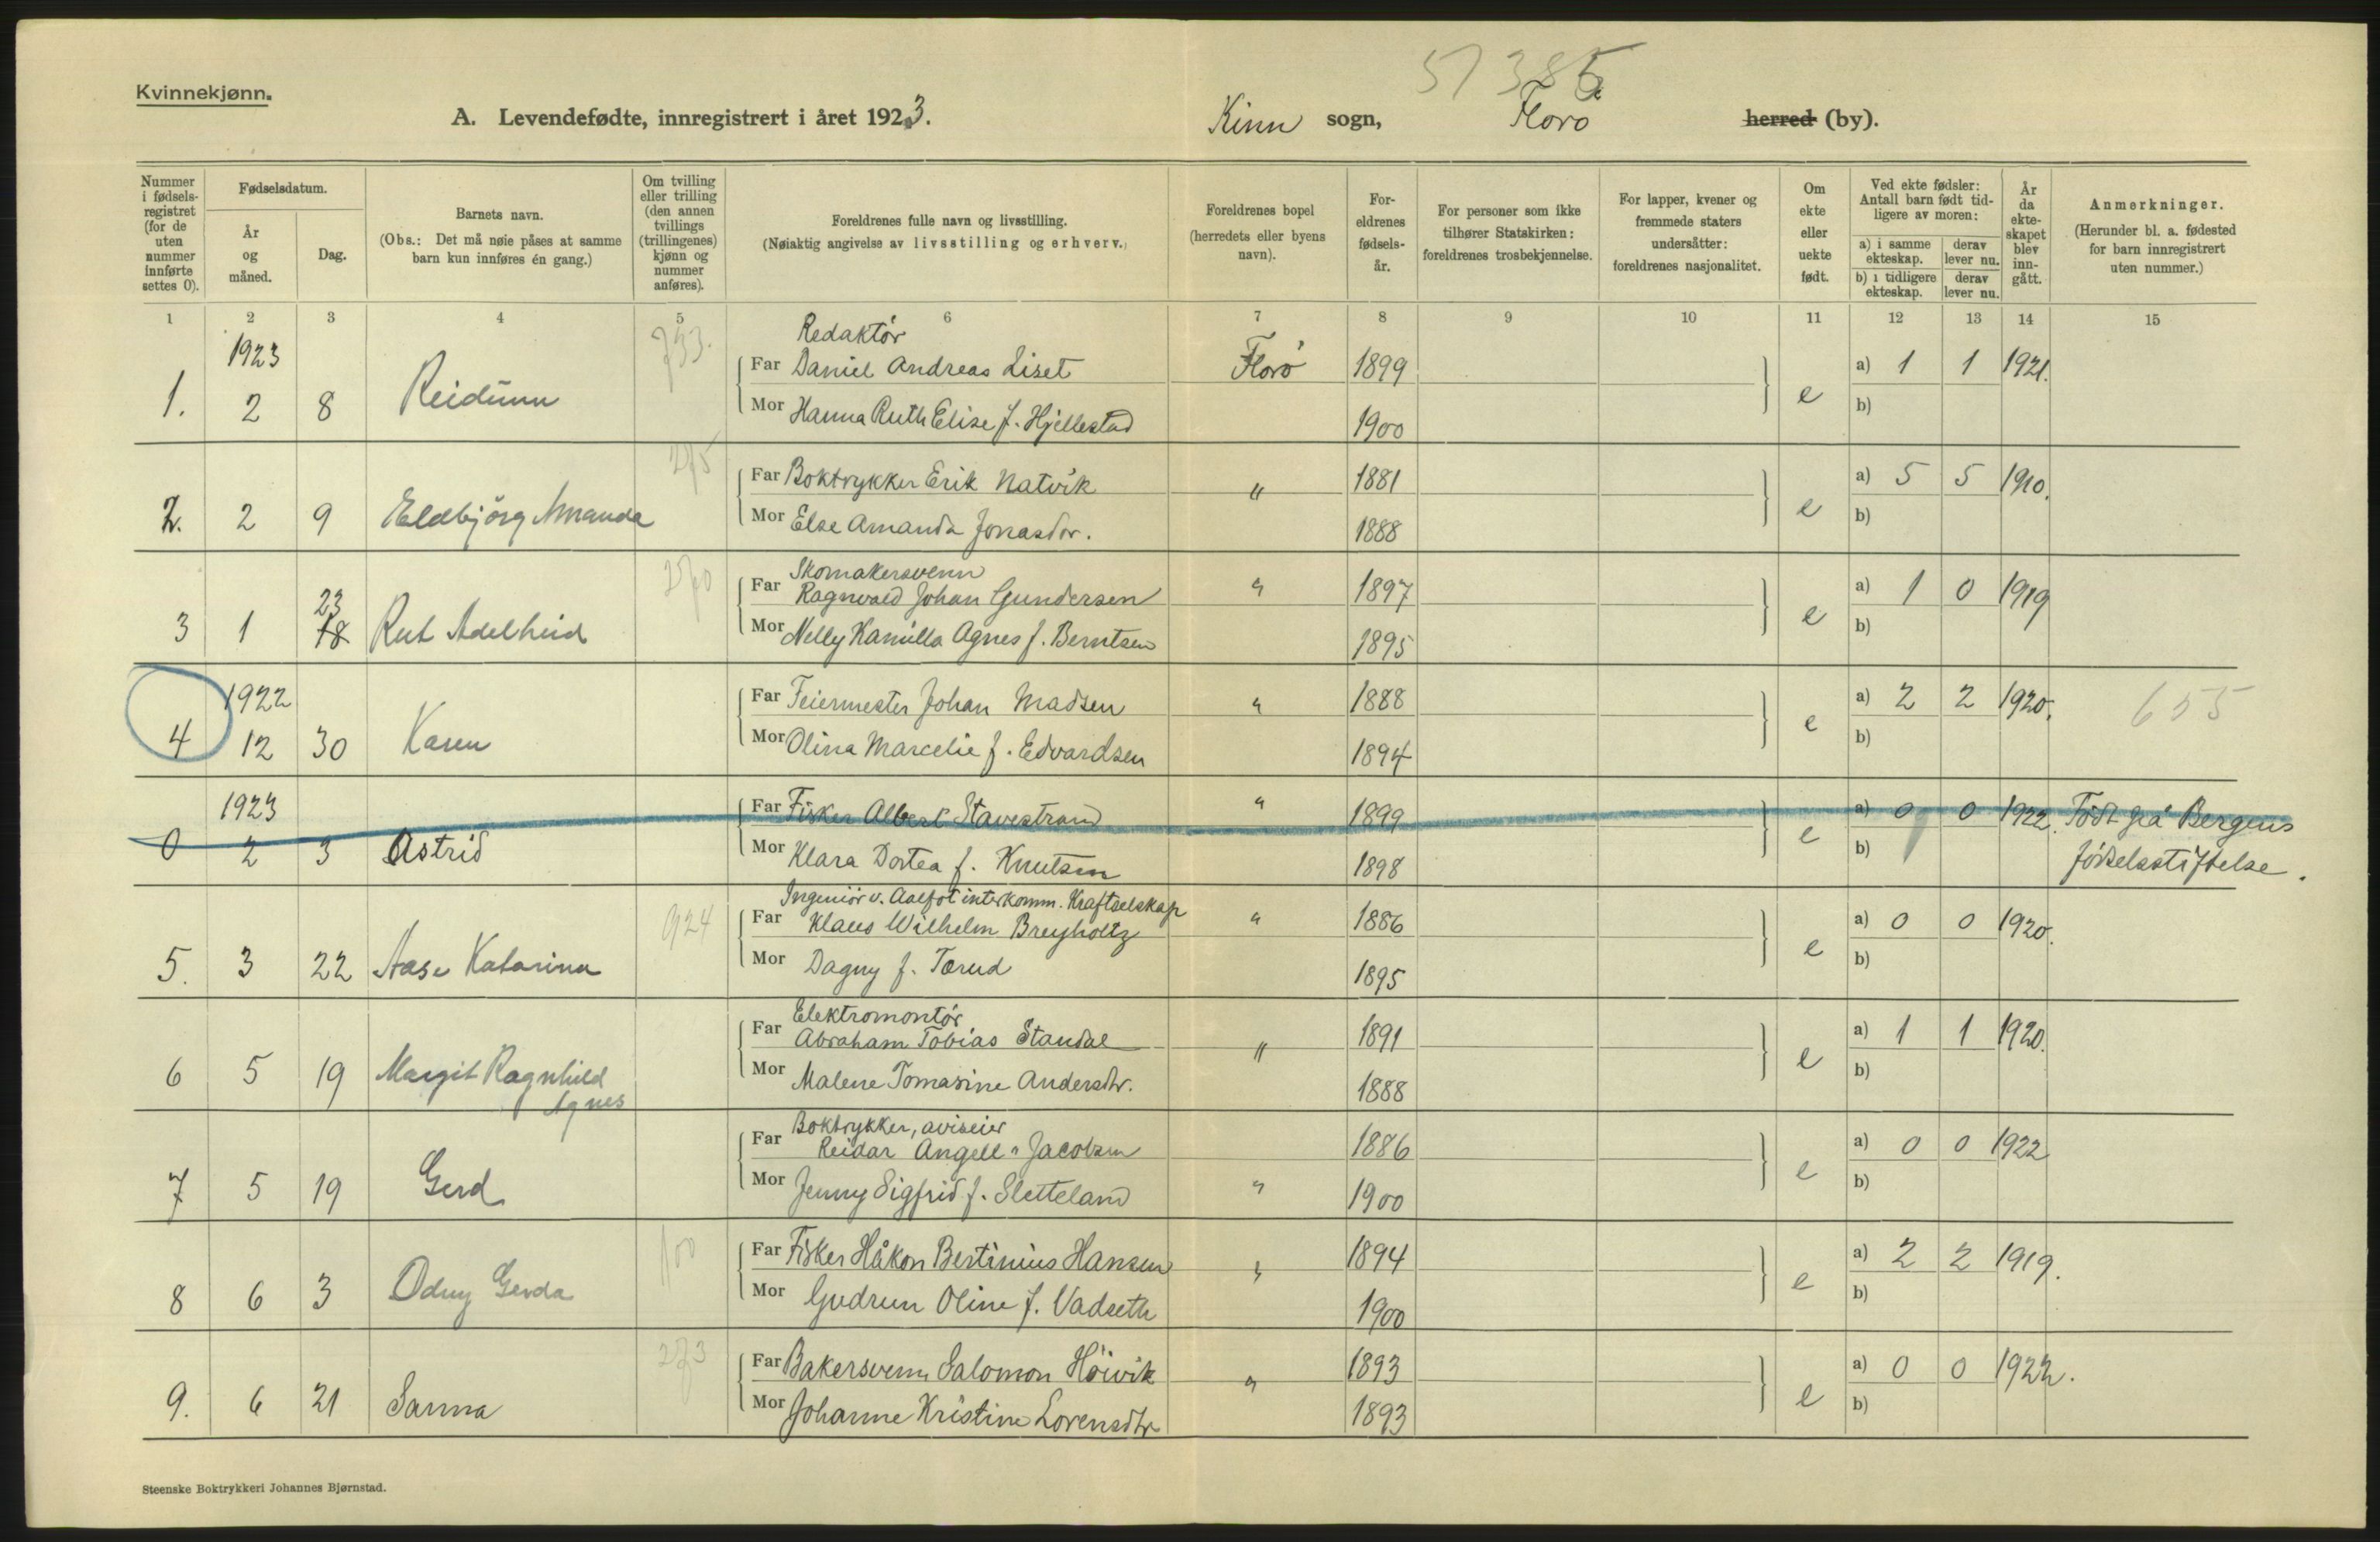 51385
Kvinnekjønn.
A. Levendefødte, innregistrert i året 1923.
Kinn sogn, Florö herred (by).
Nummer i fødsels-registret (for de uten nummer innførte settes 0).
Fødselsdatum.
År og måned.
Dag.
Barnets navn.
(Obs.: Det må nøie påses at samme barn kun innføres én gang.)
Om tvilling eller trilling (den annen tvillings (trillingenes) kjønn og nummer anføres).
Foreldrenes fulle navn og livsstilling.
(Nøiaktig angivelse av livsstilling og erhverv.)
Foreldrenes bopel (herredets eller byens navn).
For-eldrenes fødsels-år.
For personer som ikke tilhører Statskirken: foreldrenes trosbekjennelse.
For lapper, kvener og fremmede staters undersåtter: foreldrenes nasjonalitet.
Om ekte eller uekte født.
Ved ekte fødsler: Antall barn født tid-ligere av moren:
a) i samme ekteskap. derav lever nu.
b) i tidligere ekteskap. derav lever nu.
År da ekte-skapet blev inn-gått.
Anmerkninger.
(Herunder bl. a. fødested for barn innregistrert uten nummer.)
1 2 3 4 5 6 7 8 9 10 11 12 13 14 15
1923 733. Redaktör
Far Daniel Andreas Liset Florö 1899 a) 1 1 1921.
1. 2 8 Reidunn e
Mor Hanna Ruth Elise f. Hjellestad 1900 b)
275
Far Boktrykker Erik Natvik " 1881 a) 5 5 1910.
2. 2 9 Eldbjörg Amanda e
Mor Else Amanda Jonasdr. 1888 b)
270 Skomakersvenn
Far Ragnvald Johan Gundersen " 1897 a) 1 0 1919
3 1 23 18 Rut Adelheid e
Mor Nelly Kamilla Agnes f. Berntsen 1895 b)
1922
Far Feiermester Johan Madsen " 1888 a) 2 2 1920. 655
4 12 30 Karen e
Mor Olina Marcelie f. Edvardsen 1894 b)
1923
Far Fisker Albert Stavestrand " 1899 a) 0 0 1922. Födt på Bergens
0 2 3 Astrid e
Mor Klara Dortea f. Knutsen 1898 b) födselsstiftelse.
Ingeniör v. Aalfot interkomm. Kraftselskap
924 Far Klaus Wilhelm Breyholtz " 1886 a) 0 0 1920.
5. 3 22 Aase Katarina e
Mor Dagny f. Torud 1895 b)
Elektromontör
Far Abraham Tobias Standal " 1891 a) 1 1 1920.
6 5 19 Margit Ragnhild e
Agnes
Mor Malene Tomasine Andersdtr. 1888 b)
Boktrykker, aviseier
Far Reidar Angell-Jacobsen 1886 a) 0 0 1922
7 5 19 Gerd e
Mor Jenny Sigfrid f. Sletteland " 1900 b)
100
Far Fisker Håkon Bertinius Hansen " 1894 a) 2 2 1919.
8 6 3 Odny Gerda e
Mor Gudrun Oline f. Vadseth 1900 b)
273
Far Bakersvenn Salomon Höivik " 1893 a) 0 0 1922.
9. 6 21 Sanna e
Mor Johanne Kristine Lorensdtr 1893 b)
Steenske Boktrykkeri Johannes Bjørnstad.